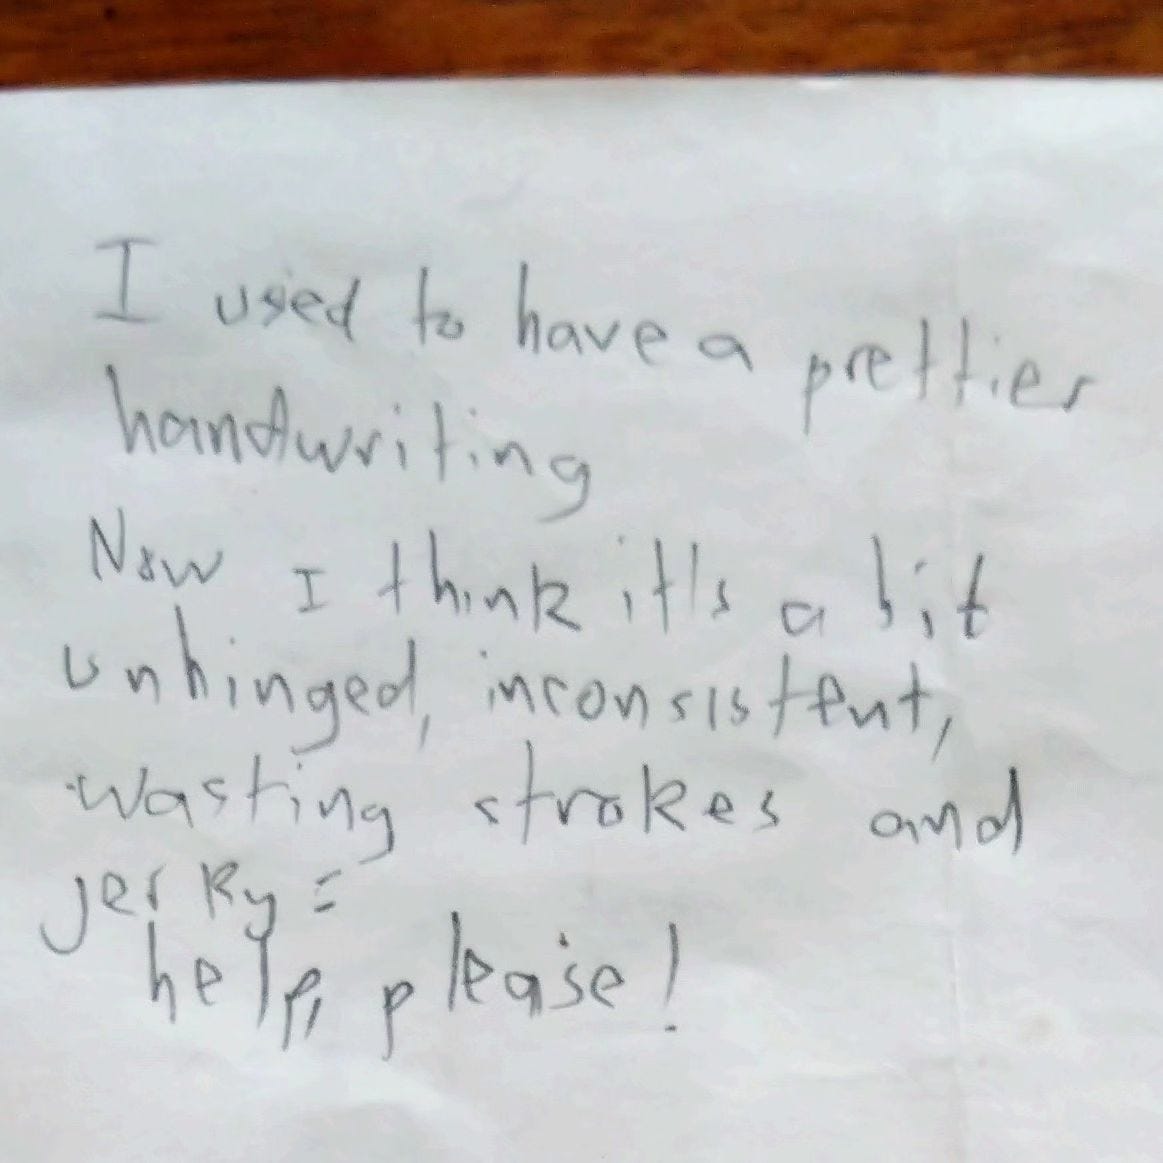 I used to have a prettier
handwriting
Now I think it's a bit
unhinged, inconsistent,
wasting strokes and
jerky =
help, please!